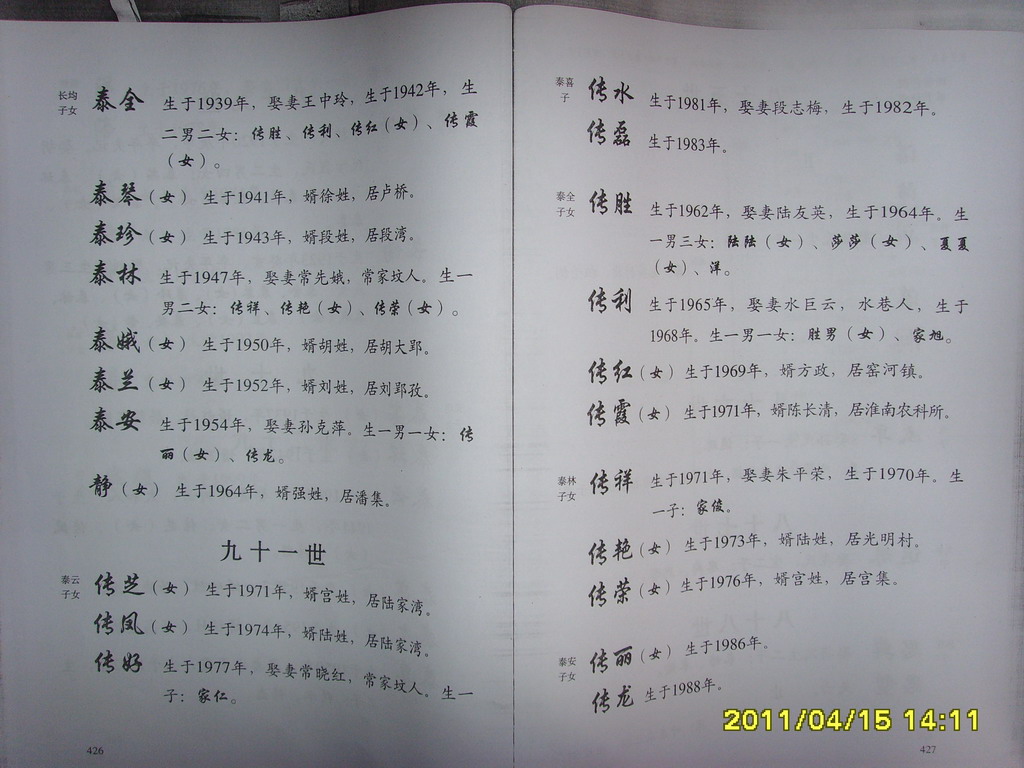 长均
子女
泰全 生于1939年，娶妻王中玲，生于1942年，生
二男二女：传胜、传利、传红（女）、传霞
（女）。
泰琴（女） 生于1941年，婿徐姓，居卢桥。
泰珍（女） 生于1943年，婿段姓，居段湾。
泰林 生于1947年，娶妻常先娥，常家坟人。生一
男二女：传祥、传艳（女）、传荣（女）。
泰娥（女） 生于1950年，婿胡姓，居胡大郢。
泰兰（女） 生于1952年，婿刘姓，居刘郢孜。
泰安 生于1954年，娶妻孙克萍。生一男一女：传
丽（女）、传龙。
静（女） 生于1964年，婿强姓，居潘集。
九十一世
泰云
子女
传芝（女） 生于1971年，婿宫姓，居陆家湾。
传凤（女） 生于1974年，婿陆姓，居陆家湾。
传好 生于1977年，娶妻常晓红，常家坟人。生一
子：家仁。
426
泰喜
子
传水 生于1981年，娶妻段志梅，生于1982年。
传磊 生于1983年。
泰全
子女
传胜 生于1962年，娶妻陆友英，生于1964年。生
一男三女：陆陆（女）、莎莎（女）、夏夏
（女）、洋。
传利 生于1965年，娶妻水巨云，水巷人，生于
1968年。生一男一女：胜男（女）、家旭。
传红（女） 生于1969年，婿方政，居窑河镇。
传霞（女） 生于1971年，婿陈长清，居淮南农科所。
泰林
子女
传祥 生于1971年，娶妻朱平荣，生于1970年。生
一子：家俊。
传艳（女） 生于1973年，婿陆姓，居光明村。
传荣（女） 生于1976年，婿宫姓，居宫集。
泰安
子女
传丽（女） 生于1986年。
传龙 生于1988年。
427
2011/04/15 14:11